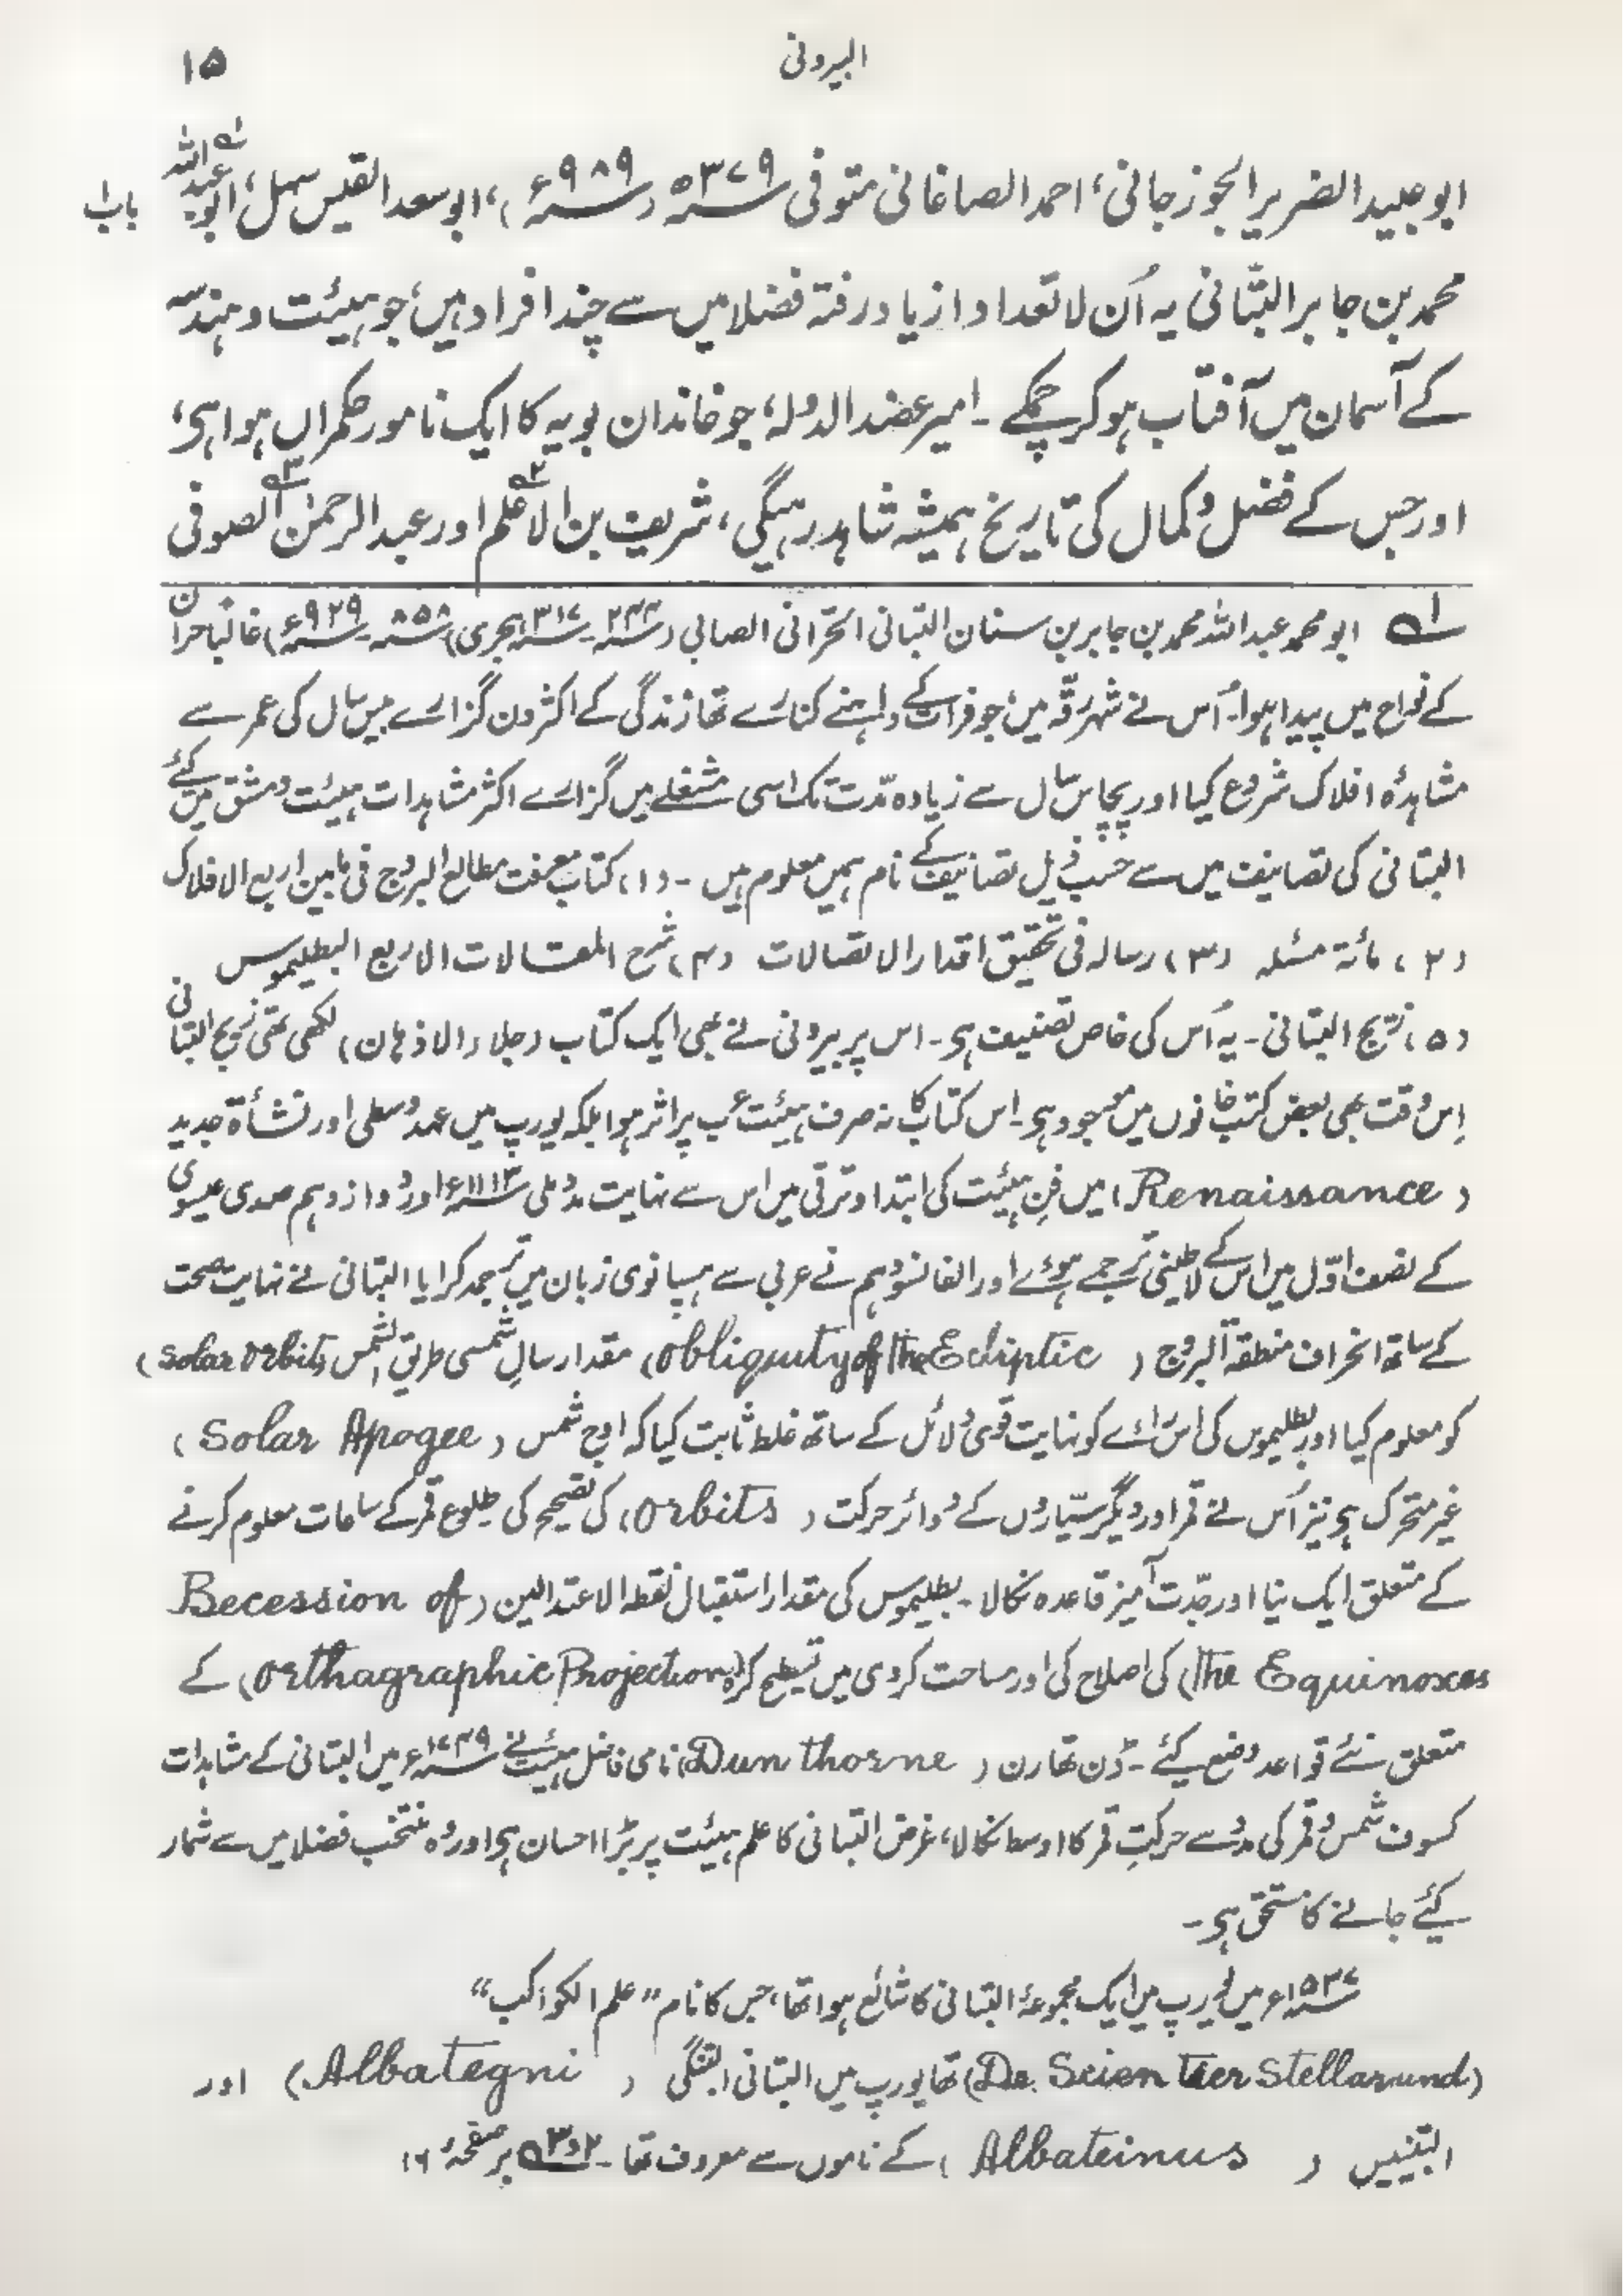 البیرونی ۱۵
ابو عبید الضریر الجوزجانی، احمد الصاغانی متوفی ۳۷۹ھ (۹۸۹ء)، ابو سعد القیس سہل، ابو عبداللہ ؎۱
باب ۱
محمد بن جابر البتّانی یہ اُن لاتعداد از یاد رفتہ فضلا میں سے چند افراد ہیں، جو ہیئت و ہندسہ
کے آسمان میں آفتاب ہو کر چمکے ۔ امیر عضد الدولہ، جو خاندان بویہ کا ایک نامور حکمراں ہوا ہی،
اور جس کے فضل و کمال کی تاریخ ہمیشہ شاہد رہیگی، شریف بن الاعلم ؎۲ اور عبدالرحمٰن الصوفی ؎۳
؎۱ ابو محمد عبد اللہ محمد بن جابر بن سنان البتانی الحرّانی الصابی (۲۴۴ – ۳۱۷ ہجری) (۸۵۸ – ۹۲۹ء) غالباً حران
کے نواح میں پیدا ہوا۔ اُس نے شہر رقّہ میں، جو فرات کے داہنے کنارے تھا زندگی کے اکثر دن گزارے بیس سال کی عمر سے
مشاہدۂ افلاک شروع کیا اور پچاس سال سے زیادہ مدّت تک اسی مشغلے میں گزارے اکثر مشاہدات ہیئت دمشق میں کئے
البتانی کی تصانیف میں سے حسب ذیل تصانیف کے نام ہمیں معلوم ہیں ۔ (۱) کتاب معرفت مطالع البروج فی مابین اربع الافلاک
(۲) مائۃ مسئلہ (۳) رسالہ فی تحقیق اقدار الاتصالات (۴) شرح المقالات الاربع البطلیموس
(۵) زیج البتانی ۔ یہ اُس کی خاص تصنیف ہی ۔ اس پر بیرونی نے بھی ایک کتاب (جلاء الاذہان) لکھی تھی زیج البتانی
اِس وقت بھی بعض کتب خانوں میں موجود ہی ۔ اس کتاب کا نہ صرف ہیئت عرب پر اثر ہوا بلکہ یورپ میں عہد وسطی اور نشأۃ جدید
(Renaissance) میں فنِ ہیئت کی ابتدا و ترقی میں اس سے نہایت مدد ملی ۱۱۱۳ء اور دوازدہم صدی عیسوی
کے نصف اوّل میں اس کے لاطینی ترجمے ہوئے اور الفانسو دہم نے عربی سے ہسپانوی زبان میں ترجمہ کرایا البتانی نے نہایت صحت
کے ساتھ انحراف منطقۃ البروج (obliquity of the Ecliptic) مقدار سالِ شمسی طریق الشمس (solar orbit)
کو معلوم کیا اور بطلیموس کی اس رائے کو نہایت قوی دلائل کے ساتھ غلط ثابت کیا کہ اوج شمس (Solar Apogee)
غیر متحرک ہی نیز اُس نے قمر اور دیگر سیّاروں کے دوائر حرکت (orbits) کی تصحیح کی طلوع قمر کے ساعات معلوم کرنے
کے متعلق ایک نیا اور جدّت آمیز قاعدہ نکالا ۔ بطلیموس کی مقدار استقبال نقطہ الاعتدالین (Becession of
the Equinoxes) کی اصلاح کی اور مساحت کروی میں تسطیح کرہ (Orthagraphic Projection) کے
متعلق نئے قواعد وضع کیے ۔ ڈن تھارن (Dun thorne) نامی فاضل ہیئت نے ۱۷۴۹ء میں البتانی کے مشاہدات
کسوف شمس و قمر کی مدد سے حرکتِ قمر کا اوسط نکالا، غرض البتانی کا علم ہیئت پر بڑا احسان ہی اور وہ منتخب فضلا میں سے شمار
کیے جانے کا مستحق ہی ۔
۱۵۳۷ء میں یورپ میں ایک مجموعۂ البتانی کا شائع ہوا تھا، جس کا نام ”علم الکواکب“
(De. Scien tier Stellarund) تھا یورپ میں البتانی البتگنی (Albategni) اور
البتینیس (Albateinus) کے ناموں سے معروف تھا ۔ ؎۲ و ؎۳ بر صفحہ ۱۶